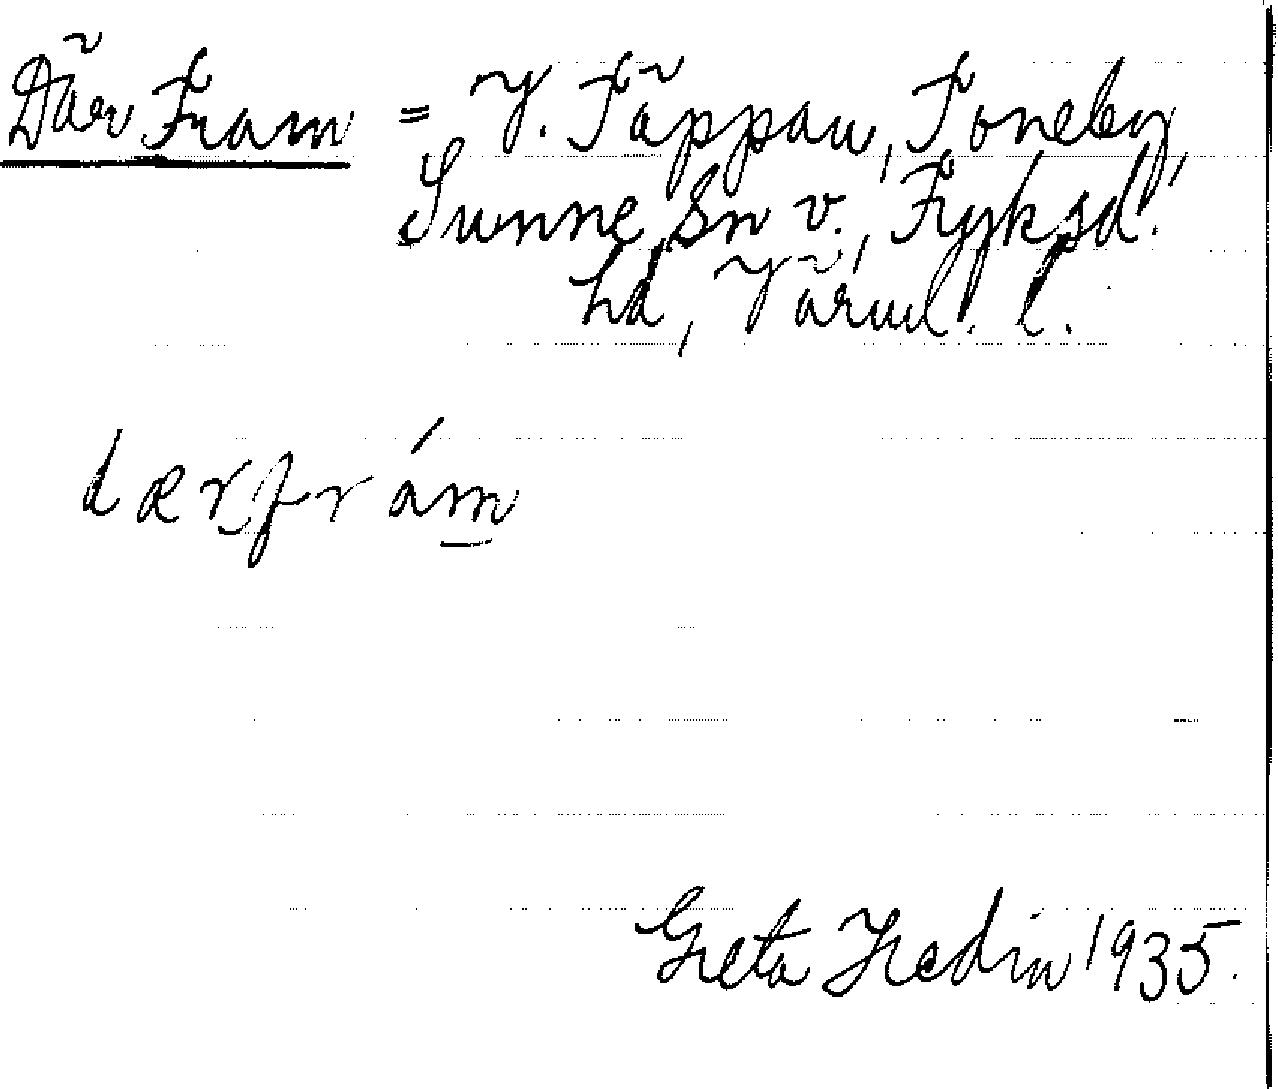 Där Fram = V. Täppan, Toneby,
Sunne sn v., Fryksd.
hd, Värml. l.
dærfrám
Greta Hedin 1935.